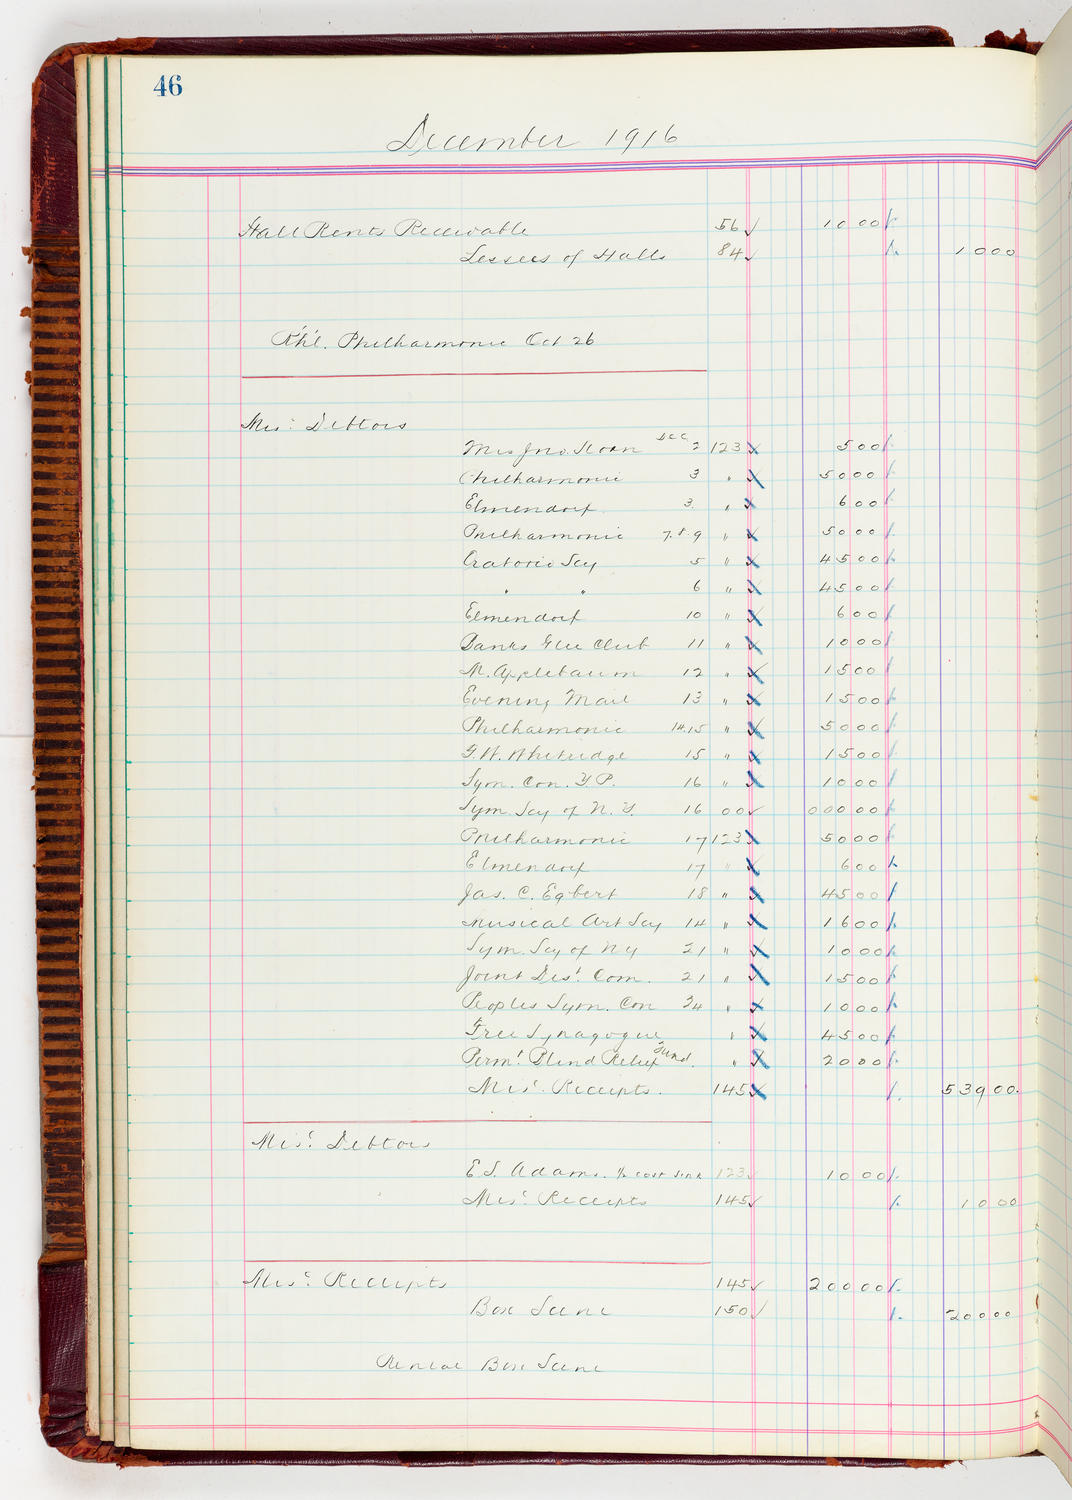 46
December 1916
Hall Rents Receivable 56 ✓ 10 00
Lessees of Halls 84 ✓ 10 00
Phil. Philharmonic Oct 26
Misc. Debtors
Mrs Jno. Sloan Dec 2 123 5 00
Philharmonic 3 " 50 00
Elmendorf 3 " 6 00
Philharmonic 7.8.9 " 50 00
Oratorio Socy 5 " 45 00
" " 6 " 45 00
Elmendorf 10 " 6 00
Banks Glee Club 11 " 10 00
M. Applebaum 12 " 15 00
Evening Mail 13 " 15 00
Philharmonic 14.15 " 50 00
G. W. Whitridge 15 " 15 00
Sym. Con. Y P. 16 " 10 00
Sym. Socy of N. Y. 16 00 ✓ 000 00
Philharmonic 17 123 50 00
Elmendorf 17 " 6 00
Jas. C. Egbert 18 " 45 00
Musical Art Socy 14 " 16 00
Sym. Socy of NY 21 " 10 00
Joint Dist. Com. 21 " 15 00
Peoples Sym. Con 24 " 10 00
Free Synagogue " 45 00
Permt. Blind Relief Fund. " 20 00
Misc. Receipts. 145 539 00
Misc. Debtors
E. S. Adams. 123 ✓ 10 00
Misc. Receipts 145 ✓ 10 00
Misc. Receipts 145 ✓ 200 00
Box Scene 150 ✓ 200 00
Rental Box Scene